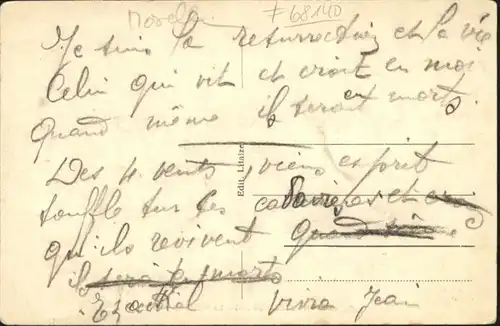 Moselle F68140
Je suis la resurrection et la vie
Celui qui vit et croit en moi
Quand même il seront morts.
Des 4 vents viens esprit
souffle sur les cadavres et
qu'ils revivent
il sera morts
Ezechiel vivra Jean
Edit. Litaize